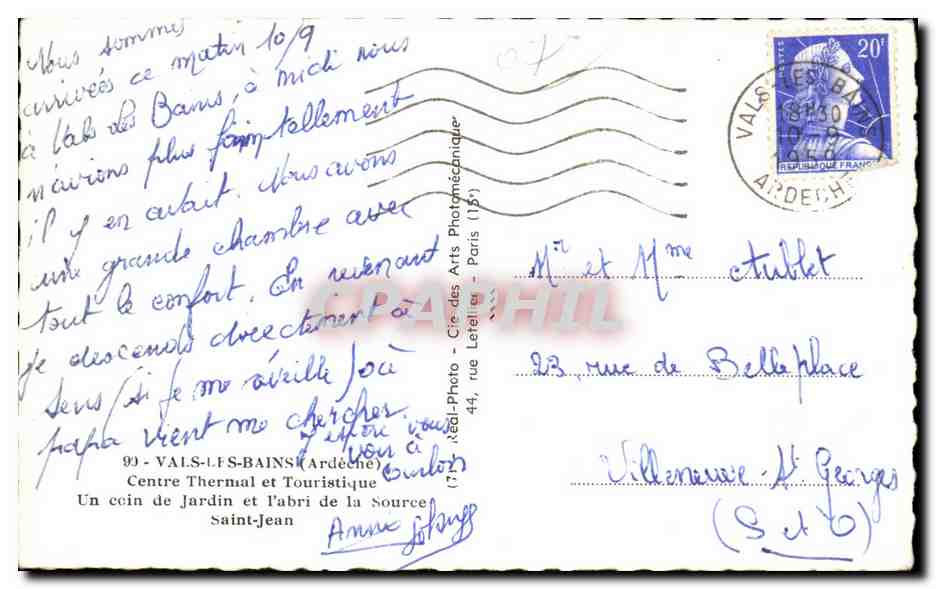 Nous sommes
arrivées ce matin 10/9
à Vals les Bains, à midi nous
n'avions plus faim tellement
il y en avait. Nous avons
une grande chambre avec
tout le confort. En revenant
je descends directement à
Sens (si je me réveille) où
papa vient me chercher.
J'espère vous
voir à
Annie
99 - VALS-LES-BAINS (Ardèche)
Centre Thermal et Touristique
Un coin de Jardin et l'abri de la Source
Saint-Jean
Réal-Photo - Cie des Arts Photomécaniques
44, rue Letellier - Paris (15e)
07
POSTES
20F
REPUBLIQUE FRANC
VALS-LES-BAINS
18H30
10-9
ARDECHE
Mr et Mme Aublet
23, rue de Belleplace
Villeneuve-St Georges
(S et O)
CPAPHIL